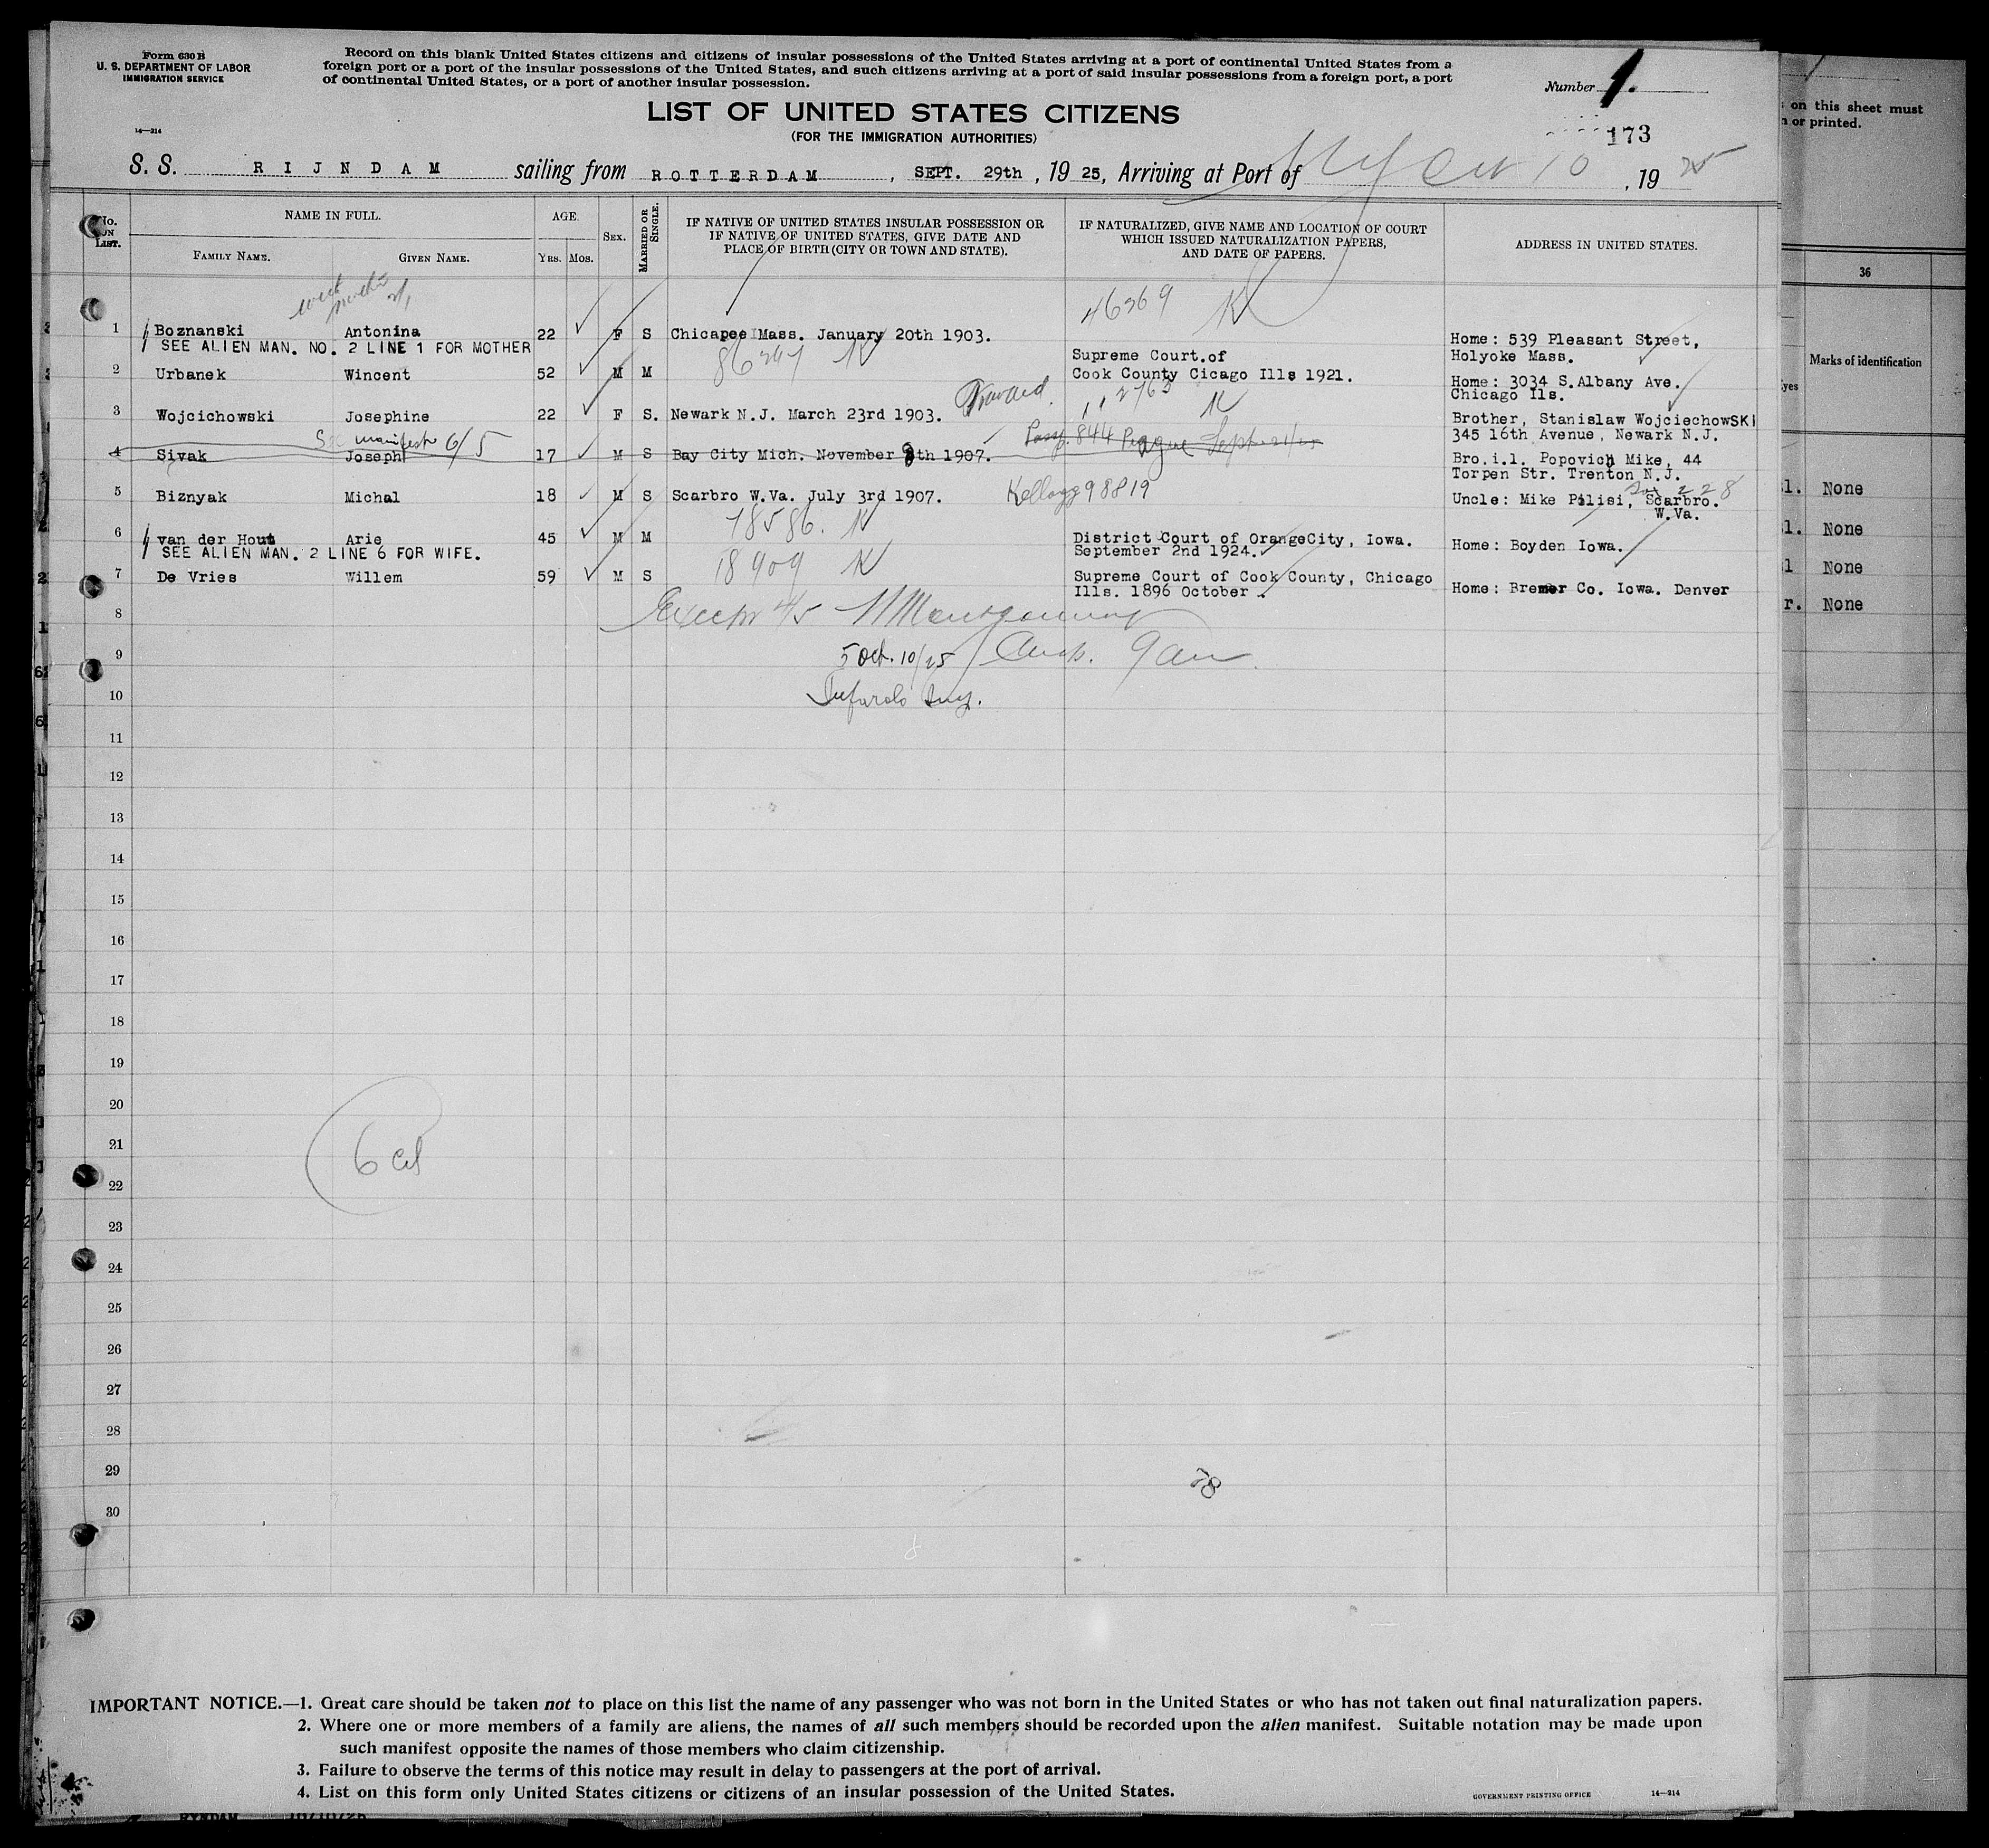 Form 630 B
U. S. DEPARTMENT OF LABOR
IMMIGRATION SERVICE
14—214
Record on this blank United States citizens and citizens of insular possessions of the United States arriving at a port of continental United States from a
foreign port or a port of the insular possessions of the United States, and such citizens arriving at a port of said insular possessions from a foreign port, a port
of continental United States, or a port of another insular possession.
Number 1.
LIST OF UNITED STATES CITIZENS
(FOR THE IMMIGRATION AUTHORITIES)
173
S. S. RIJNDAM sailing from ROTTERDAM, SEPT. 29th, 1925, Arriving at Port of NY Oct 10, 1925
No. ON LIST.
NAME IN FULL.
FAMILY NAME. GIVEN NAME.
AGE.
YRS. MOS.
SEX.
MARRIED OR SINGLE.
IF NATIVE OF UNITED STATES INSULAR POSSESSION OR
IF NATIVE OF UNITED STATES, GIVE DATE AND
PLACE OF BIRTH (CITY OR TOWN AND STATE).
IF NATURALIZED, GIVE NAME AND LOCATION OF COURT
WHICH ISSUED NATURALIZATION PAPERS,
AND DATE OF PAPERS.
ADDRESS IN UNITED STATES.
46369 K
1 Boznanski Antonina 22 F S Chicapee Mass. January 20th 1903. Home: 539 Pleasant Street,
Holyoke Mass.
SEE ALIEN MAN. NO. 2 LINE 1 FOR MOTHER
2 Urbanek Wincent 52 M M Supreme Court of
Cook County Cicago Ills 1921. Home: 3034 S.Albany Ave.
Chicago Ils.
3 Wojcichowski Josephine 22 F S. Newark N.J. March 23rd 1903. 112763 K Brother, Stanislaw WojciechowSKI
345 16th Avenue, Newark N.J.
manifest 6/5
4 Sivak Joseph 17 M S Bay City Mich. November 8th 1907. Pass. 844 Prague Sept 21/25 Bro.i.l. Popovich Mike, 44
Torpen Str. Trenton N.J.
5 Biznyak Michal 18 M S Scarbro W.Va. July 3rd 1907. Kellogg 98819 Uncle: Mike Pilisi, Scarbro.
W.Va.
228
78586. K
6 van der Hout Arie 45 M M District Court of OrangeCity, Iowa.
September 2nd 1924. Home: Boyden Iowa.
SEE ALIEN MAN. 2 LINE 6 FOR WIFE.
18909 K
7 De Vries Willem 59 M S Supreme Court of Cook County, Chicago
Ills. 1896 October. Home: Bremer Co. Iowa. Denver
8
9
5 Oct. 10/25
10
11
12
13
14
15
16
17
18
19
20
21
6
22
23
24
25
26
27
28
29
30
IMPORTANT NOTICE.—1. Great care should be taken not to place on this list the name of any passenger who was not born in the United States or who has not taken out final naturalization papers.
2. Where one or more members of a family are aliens, the names of all such members should be recorded upon the alien manifest. Suitable notation may be made upon
such manifest opposite the names of those members who claim citizenship.
3. Failure to observe the terms of this notice may result in delay to passengers at the port of arrival.
4. List on this form only United States citizens or citizens of an insular possession of the United States.
GOVERNMENT PRINTING OFFICE 14—214
on this sheet must
or printed.
36
Marks of identification
None
None
None
None